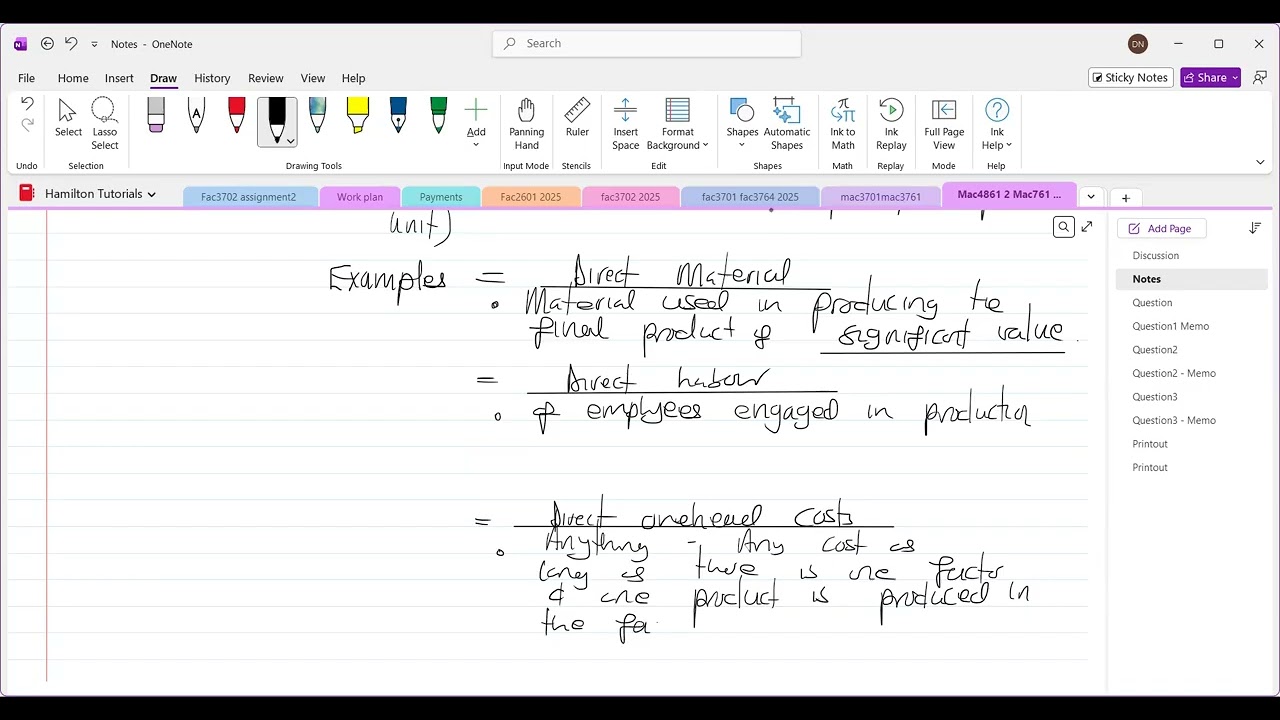 Notes - OneNote
Search
DN
File Home Insert Draw History Review View Help
Sticky Notes Share
Select Lasso Select Add Panning Hand Ruler Insert Space Format Background Shapes Automatic Shapes Ink to Math Ink Replay Full Page View Ink Help
Undo Selection Drawing Tools Input Mode Stencils Edit Shapes Math Replay Mode Help
Hamilton Tutorials Fac3702 assignment2 Work plan Payments Fac2601 2025 fac3702 2025 fac3701 fac3764 2025 mac3701mac3761 Mac4861 2 Mac761 ...
Add Page
Discussion
Notes
Question
Question1 Memo
Question2
Question2 - Memo
Question3
Question3 - Memo
Printout
Printout
unit)
Examples = Direct Material
• Material used in producing the
final product of significant value.
= Direct labour
• of employees engaged in production
= Direct overhead costs
• Anything - Any cost as
long as there is one factor
& one product is produced in
the fa